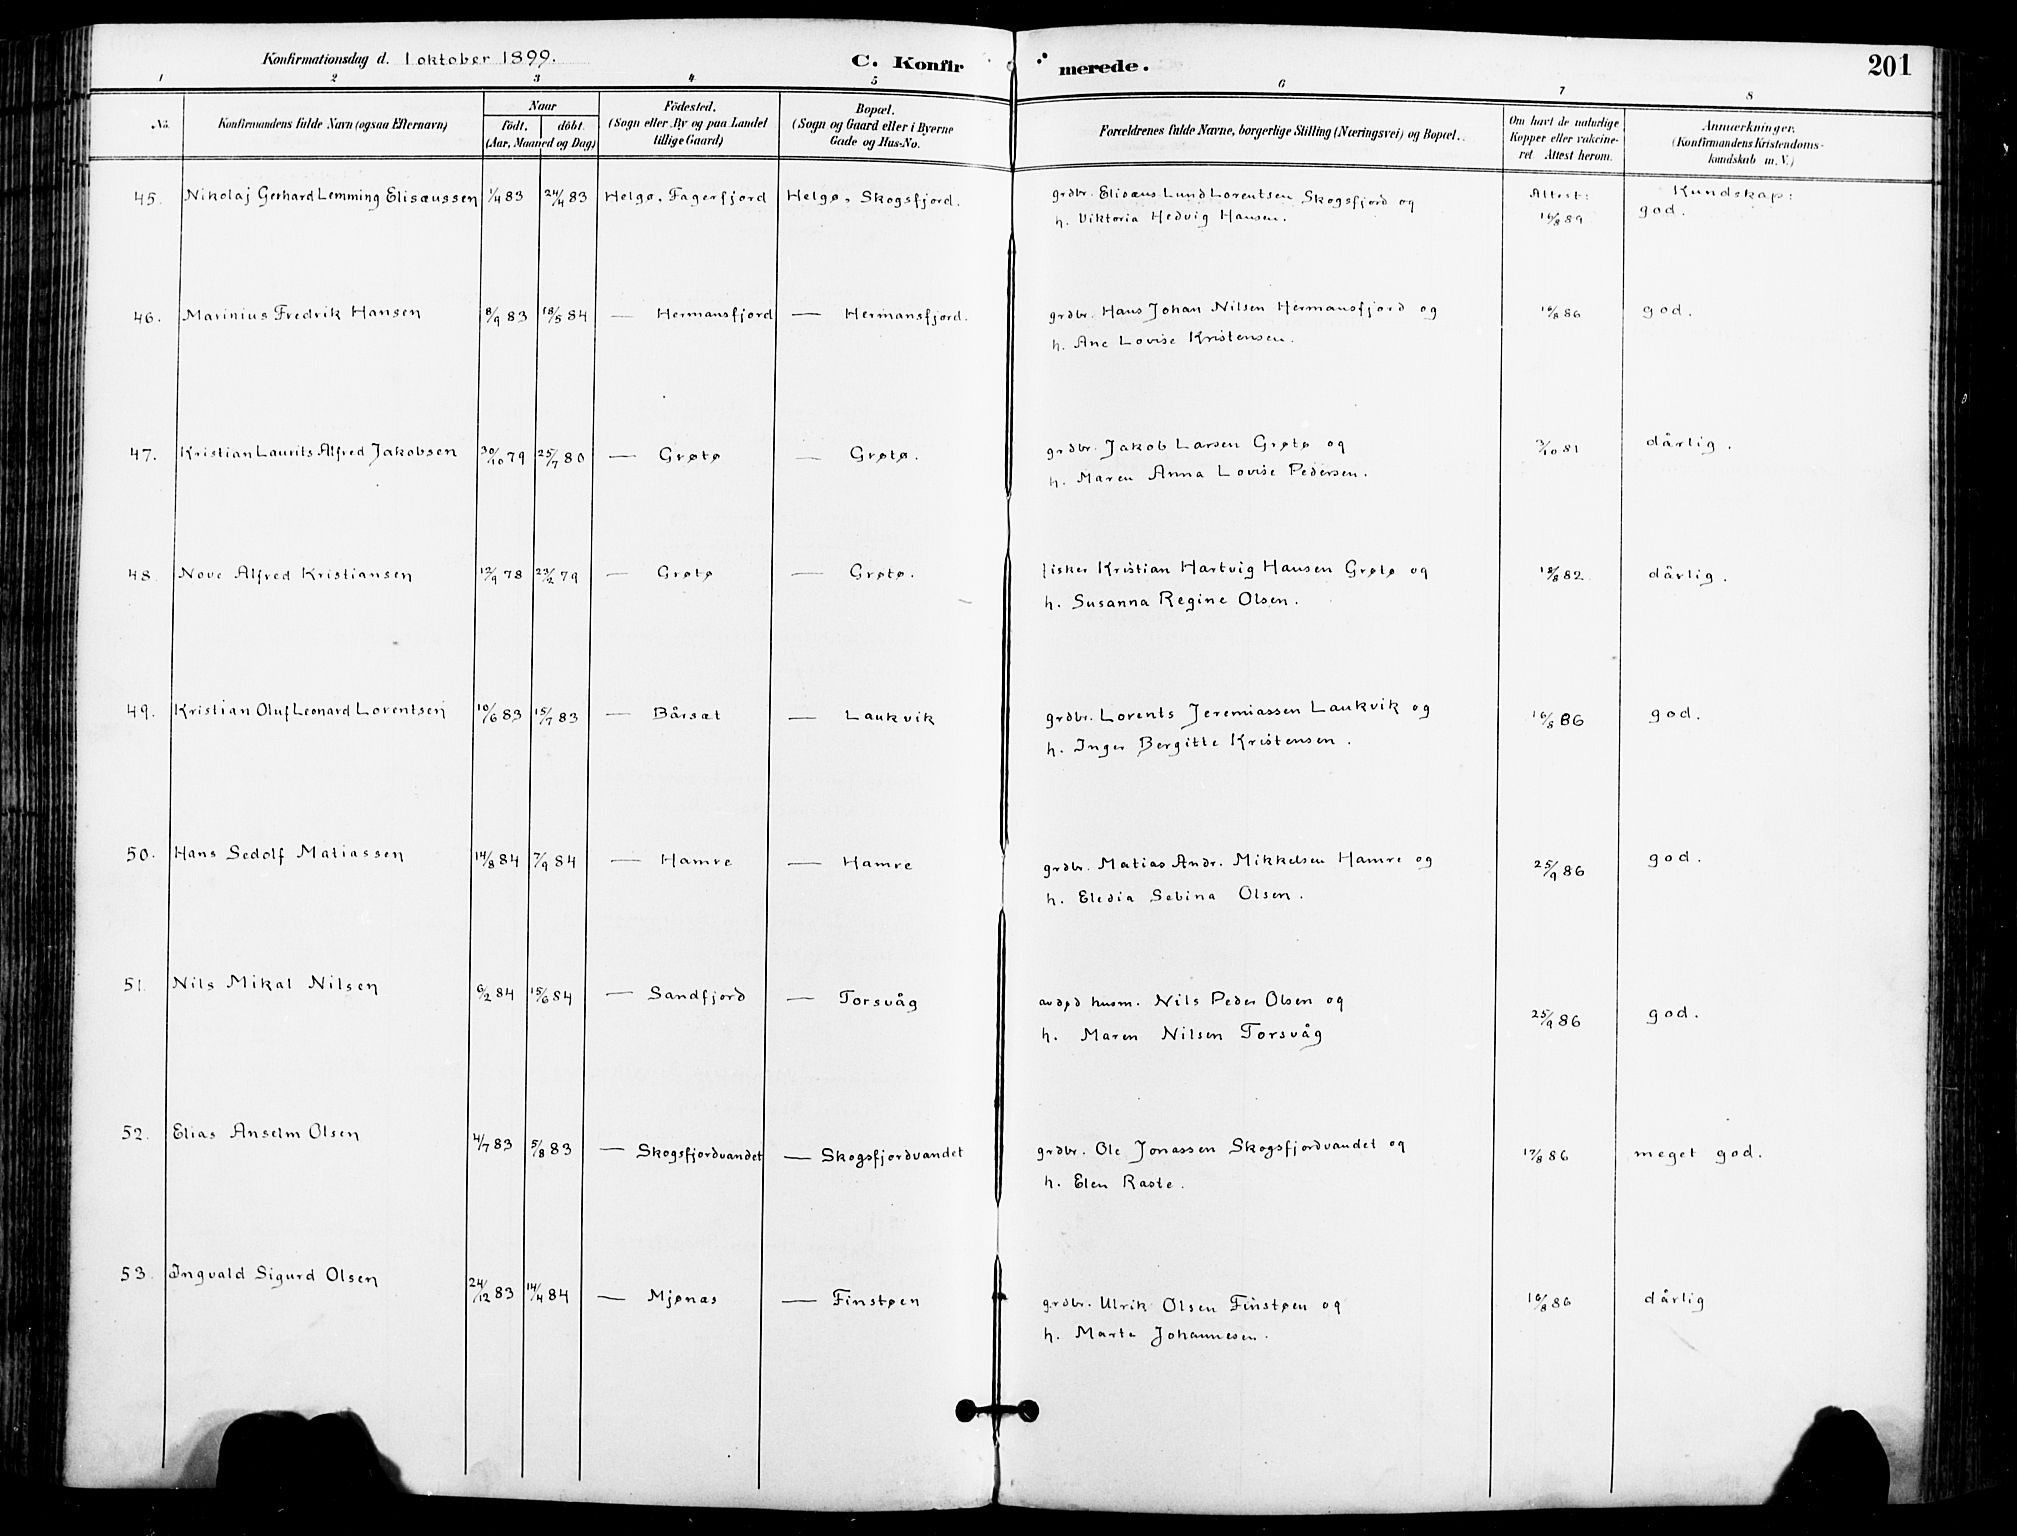 Konfirmationsdag d. 1 oktober 1899. C. Konfirmerede. 201
1 2 3 4 5 6 7 8
No. Konfirmandens fulde Navn (ogsaa Efternavn)
Naar
födt. döbt.
(Aar, Maaned og Dag)
Födested.
(Sogn eller By og paa Landet
tillige Gaard)
Bopæl.
(Sogn og Gaard eller i Byerne
Gade og Hus-No.
Forældrenes fulde Navne, borgerlige Stilling (Næringsvei) og Bopæl.
Om havt de naturlige
Kopper eller vakcine-
ret. Attest herom.
Anmærkninger.
(Konfirmandens Kristendoms-
kundskab m. V.)
45. Nikolaj Gerhard Lemming Elisæussen 1/4 83 24/4 83 Helgø, Fagerfjord Helgø, Skogsfjord. grdbr. Elisæus Lund Lorentsen Skogsfjord og Attest: Kundskap:
h. Viktoria Hedvig Hansen. 16/8 89 god.
46. Marinius Fredrik Hansen 8/9 83 18/5 84 — Hermansfjord — Hermansfjord. grdbr. Hans Johan Nilsen Hermansfjord og 16/8 86 god.
h. Ane Lovise Kristensen.
47. Kristian Laurits Alfred Jakobsen 30/10 79 25/7 80 — Grøtø — Grøtø. grdbr. Jakob Larsen Grøtø og 3/10 81 dårlig.
h. Maren Anna Lovise Pedersen.
48. Nove Alfred Kristiansen 12/9 78 23/2 79 — Grøtø — Grøtø. fisker Kristian Hartvig Hansen Grøtø og 18/8 82 dårlig.
h. Susanna Regine Olsen.
49. Kristian Oluf Leonard Lorentsen 10/6 83 15/7 83 — Bårsæt — Laukvik grdbr. Lorents Jeremiassen Laukvik og 16/8 86 god.
h. Inger Bergitte Kristensen.
50. Hans Sedolf Matiassen 14/8 84 7/9 84 — Hamre — Hamre grdbr. Matias Andr. Mikkelsen Hamre og 25/9 86 god.
h. Eledia Sebina Olsen.
51. Nils Mikal Nilsen 6/2 84 15/6 84 — Sandfjord — Torsvåg avdød husm. Nils Peder Olsen og 25/9 86 god.
h. Maren Nilsen Torsvåg
52. Elias Anselm Olsen 4/7 83 5/8 83 — Skogsfjordvandet — Skogsfjordvandet grdbr. Ole Jonassen Skogsfjordvandet og 17/8 86 meget god.
h. Elen Raste.
53. Ingvald Sigurd Olsen 24/12 83 14/4 84 — Mjønas — Finstøen grdbr. Ulrik Olsen Finstøen og 16/8 86 dårlig
h. Marte Johannesen.